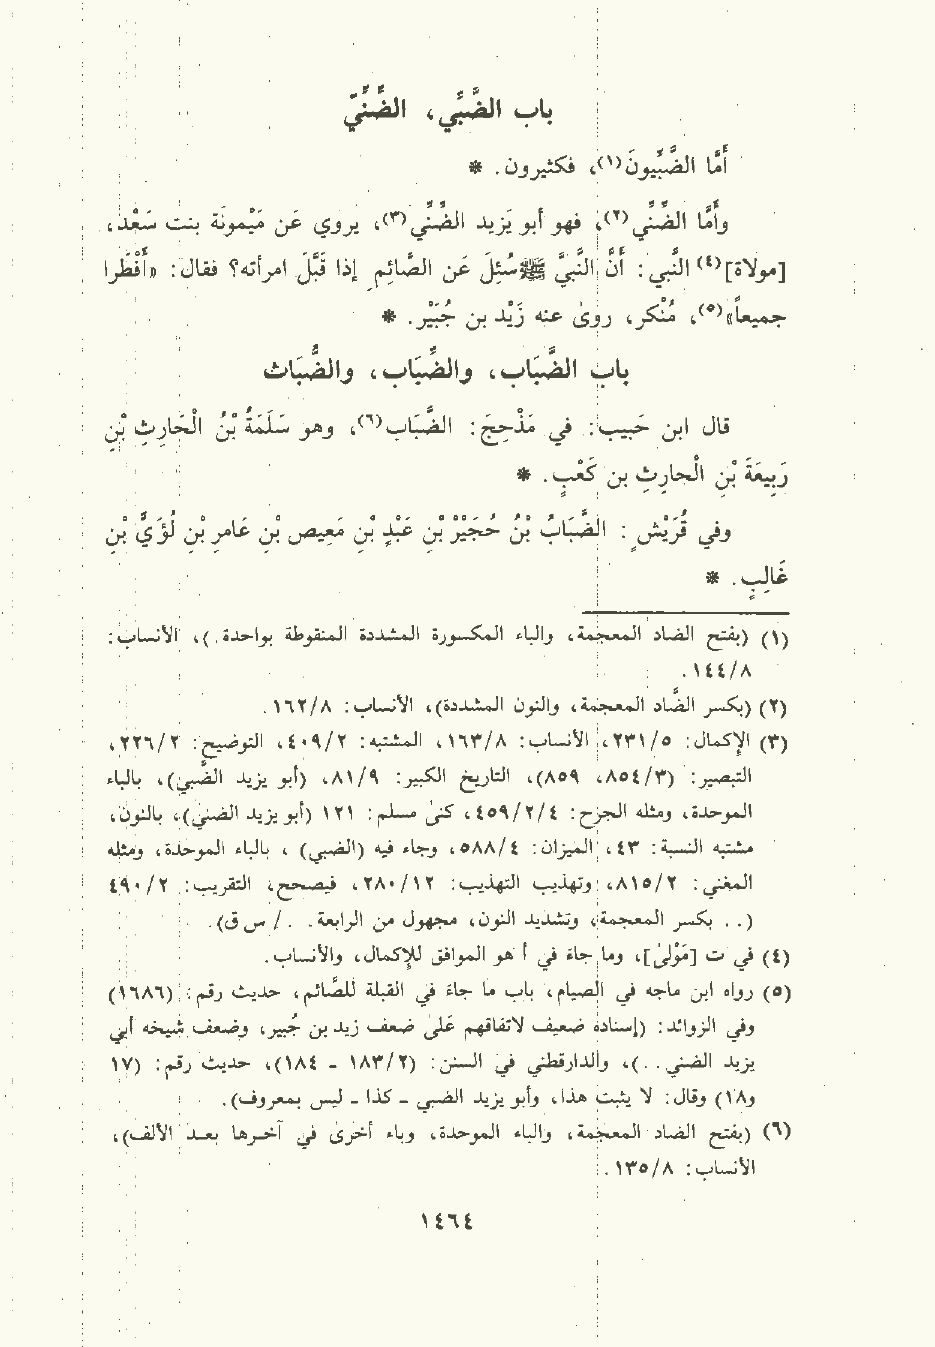 باب الضَّبِّي، الضِّنِّيّ
أَمَّا الضَّبِّيُّونَ(١)، فكثيرون. *
وأَمَّا الضِّنِّي(٢)، فهو أبو يَزيد الضِّنِّي(٣)، يروي عَن مَيْمونَة بنت سَعْد،
[مولاة](٤) النَّبي: أَنَّ النَّبيَّ ﷺ سُئِلَ عَن الصَّائِم إذا قَبَّلَ امرأته؟ فقال: «أَفْطَرا
جميعاً»(٥)، مُنْكر، روىٰ عنه زَيْد بن جُبَيْر. *
باب الضَّبَاب، والضِّبَاب، والضُّبَاث
قال ابن حَبيب: في مَذْحِجَ: الضَّبَاب(٦)، وهو سَلَمَةُ بْنُ الْحَارِثِ بْنِ
رَبِيعَةَ بْنِ الْحارِثِ بن كَعْبٍ. *
وفي قُرَيْشٍ: الضَّبَابُ بْنُ حُجَيْرْ بْنِ عَبْدِ بْنِ مَعِيص بْنِ عَامرِ بْنِ لُؤَيِّ بْنِ
غَالِبٍ. *
(١) (بفتح الضاد المعجمة، والباء المكسورة المشددة المنقوطة بواحدة.)، الأنساب:
٨/١٤٤.
(٢) (بكسر الضَّاد المعجمة، والنون المشددة)، الأنساب: ٨/١٦٢.
(٣) الإكمال: ٥/٢٣١، الأنساب: ٨/١٦٣، المشتبه: ٢/٤٠٩، التوضيح: ٢/٢٢٦،
التبصير: (٣/٨٥٤، ٨٥٩)، التاريخ الكبير: ٩/٨١، (أبو يزيد الضَّبي)، بالباء
الموحدة، ومثله الجرح: ٤/٢/٤٥٩، كنىٰ مسلم: ١٢١ (أبو يزيد الضني)، بالنون،
مشتبه النسبة: ٤٣، الميزان: ٤/٥٨٨، وجاء فيه (الضبي) ، بالباء الموحدة، ومثله
المغني: ٢/٨١٥، وتهذيب التهذيب: ١٢/٢٨٠، فيصحح، التقريب: ٢/٤٩٠
(.. بكسر المعجمة، وتشديد النون، مجهول من الرابعة. . / س ق).
(٤) في ت [مَوْلىٰ]، وما جاء في أ هو الموافق للإكمال، والأنساب.
(٥) رواه ابن ماجه في الصيام، باب ما جاء في القبلة للصَّائم، حديث رقم: (١٦٨٦)
وفي الزوائد: (إسناده ضعيف لاتفاقهم علىٰ ضعف زيد بن جُبير، وضعف شيخه أبي
يزيد الضني..)، والدارقطني في السنن: (٢/١٨٣ - ١٨٤)، حديث رقم: (١٧
و١٨) وقال: لا يثبت هذا، وأبو يزيد الضبي - كذا - ليس بمعروف).
(٦) (بفتح الضاد المعجمة، والباء الموحدة، وباء أخرىٰ في آخرها بعد الألف)،
الأنساب: ٨/١٣٥.
١٤٦٤